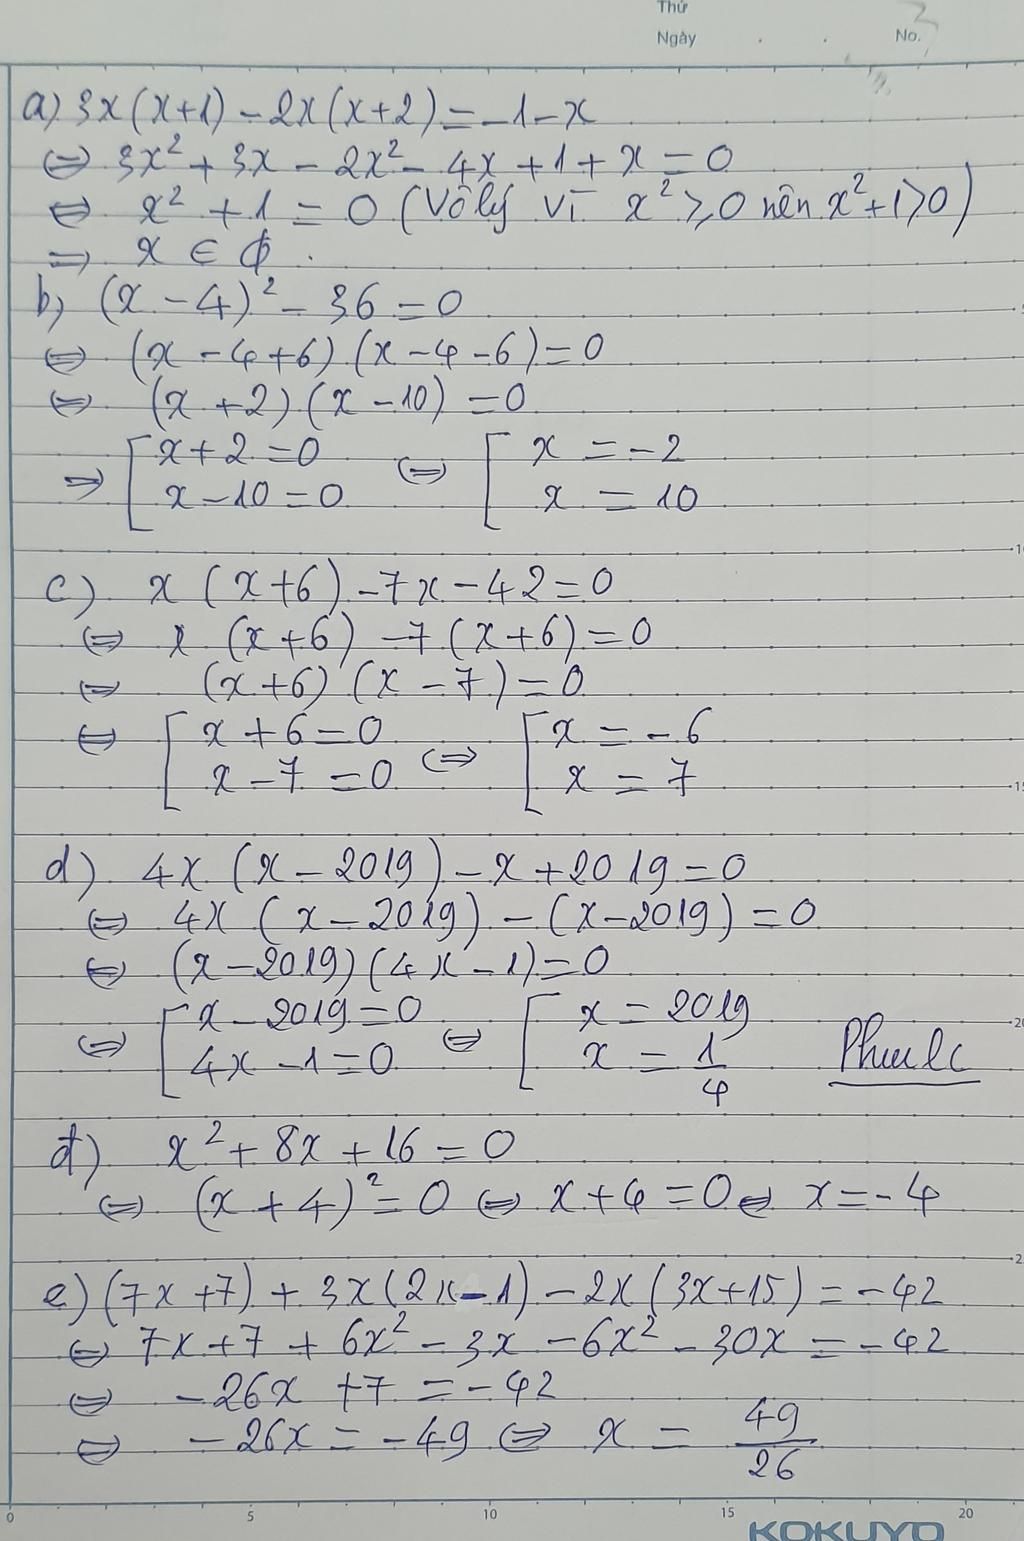 Thứ
Ngày . . No. 3
a) 3x(x+1) - 2x(x+2) = -1 - x
⇔ 3x² + 3x - 2x² - 4x + 1 + x = 0
⇔ x² + 1 = 0 (Vô lý vì x² ≥ 0 nên x² + 1 > 0)
⇒ x ∈ ∅.
b) (x - 4)² - 36 = 0
⇔ (x - 4 + 6)(x - 4 - 6) = 0
⇔ (x + 2)(x - 10) = 0
⇒ [ x + 2 = 0 ⇔ [ x = -2
x - 10 = 0 x = 10
c) x(x+6) - 7x - 42 = 0
⇔ x(x+6) - 7(x+6) = 0
⇔ (x+6)(x - 7) = 0
⇔ [ x + 6 = 0 ⇔ [ x = -6
x - 7 = 0 x = 7
d) 4x(x - 2019) - x + 2019 = 0
⇔ 4x(x - 2019) - (x - 2019) = 0
⇔ (x - 2019)(4x - 1) = 0
⇔ [ x - 2019 = 0 ⇔ [ x = 2019
4x - 1 = 0 x = 1/4
đ) x² + 8x + 16 = 0
⇔ (x + 4)² = 0 ⇔ x + 4 = 0 ⇔ x = -4
e) (7x + 7) + 3x(2x - 1) - 2x(3x + 15) = -42
⇔ 7x + 7 + 6x² - 3x - 6x² - 30x = -42
⇔ -26x + 7 = -42
⇔ -26x = -49 ⇔ x = 49/26
0 5 10 15 20
KOKUYO